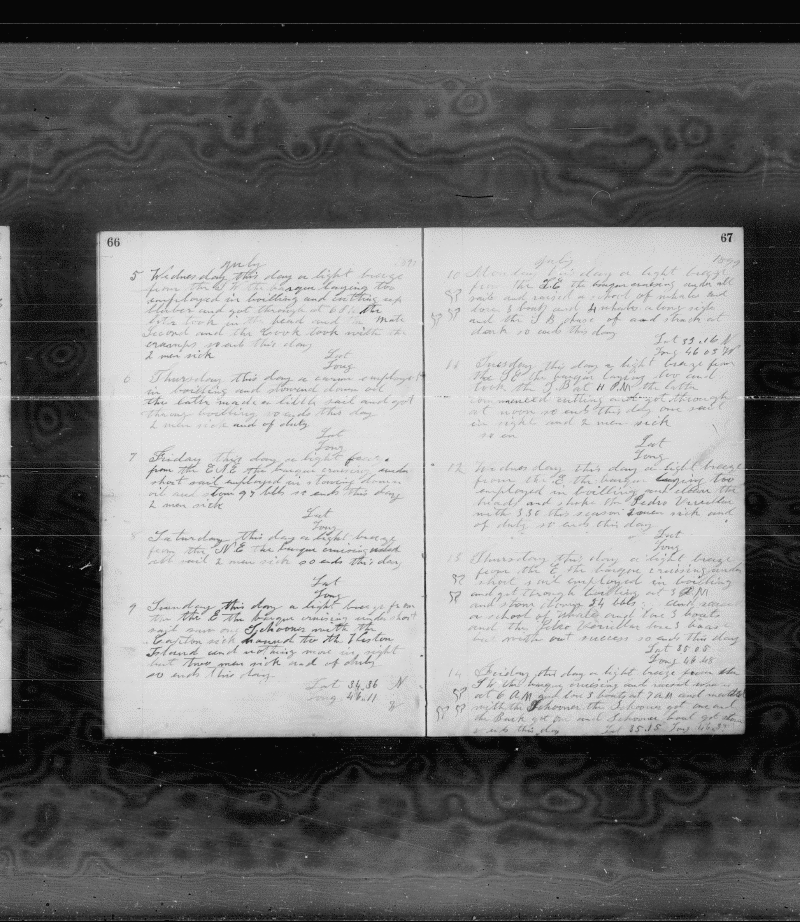 66
July
5 Wednesday this day a light breeze
from the the barque laying too
employed in boilling and cutting up
blubber and got through at 6 P.M. the
took in the head and the Mate
Second and the Cook took with the
cramps so ends this day
2 men sick Lat
Long
6 Thursday this day a employed
in boilling and stowed down oil
the latter made a little sail and got
through boilling so ends this day
2 men sick and of duty
Lat
Long
7 Friday this day a light
from the E.N.E the barque cruising under
short sail employed in stowing down
oil and stow 97 bbls so ends this day
2 men sick
Lat
Long
8 Saturday this day a light breeze
from the N.E the barque cruising under
all sail 2 men sick so ends this day
Lat
Long
9 Sunday this day a light breeze from
the E the barque cruising under short
sail saw one Schooner with the
Captin sick bound to the Western
Island and nothing more in sight
but two men sick and of duty
so ends this day
Lat 34.36 N
Long 46.11 W
67
July 1899
10 Monday this day a light breeze
from the S.E the barque cruising under all
sail and raised a school of whales and
lore 3 boats and 4 whales along side
and the of and struck at
dark so ends this day
Lat 33.16 N
Long 46.03 W
11 Tuesday this day a light breeze from
the S.E the barque laying too and
took the 11 P.M the latter
commenced cutting and got through
at noon so ends this day one sail
in sight and 2 men sick
so en
Lat
Long
12 Wednesday this day a light breeze
from the E the barque laying too
employed in boilling and clean the
heads and spoke the Pedro Varella
with 330 this season 2 men sick and
of duty so ends this day
Lat
Long
13 Thursday this day a light breeze
from the E the barque cruising under
short sail employed in boilling
and got through boilling at 3 P.M
and stow down 34 bbls and raised
a school of whales and lore 3 boats
and the Pedro Varella lore 3 boats
but with out success so ends this day
Lat 35.05
Long 46.48
14 Friday this day a light breeze from the
S.E the barque cruising and raised
at 6 A.M and lore 3 boats at 7 A.M and
with the Schooner the Schooner got one and
the Bark got one and Schooner boat got
so ends this day Lat 35.15 Long